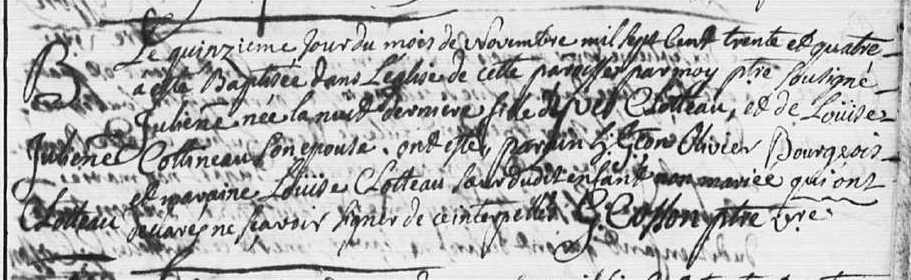 Le quinzieme Jour du mois de Novembre mil sept Cent trente et quatre
B. a esté Baptisée dans L'eglise de cette paroisse par moy ptre soussigné
Juliene née la nuit derniere fille d' Clotteau, et de Loüise
Juliene Collineau son epouse. ont esté parain Olivier Bourgeois
et maraine Loüise Clotteau sœur dudit enfant non mariée qui ont
Clotteau declaré ne sçavoir signer de ce interpellés G. Cosson ptre vre